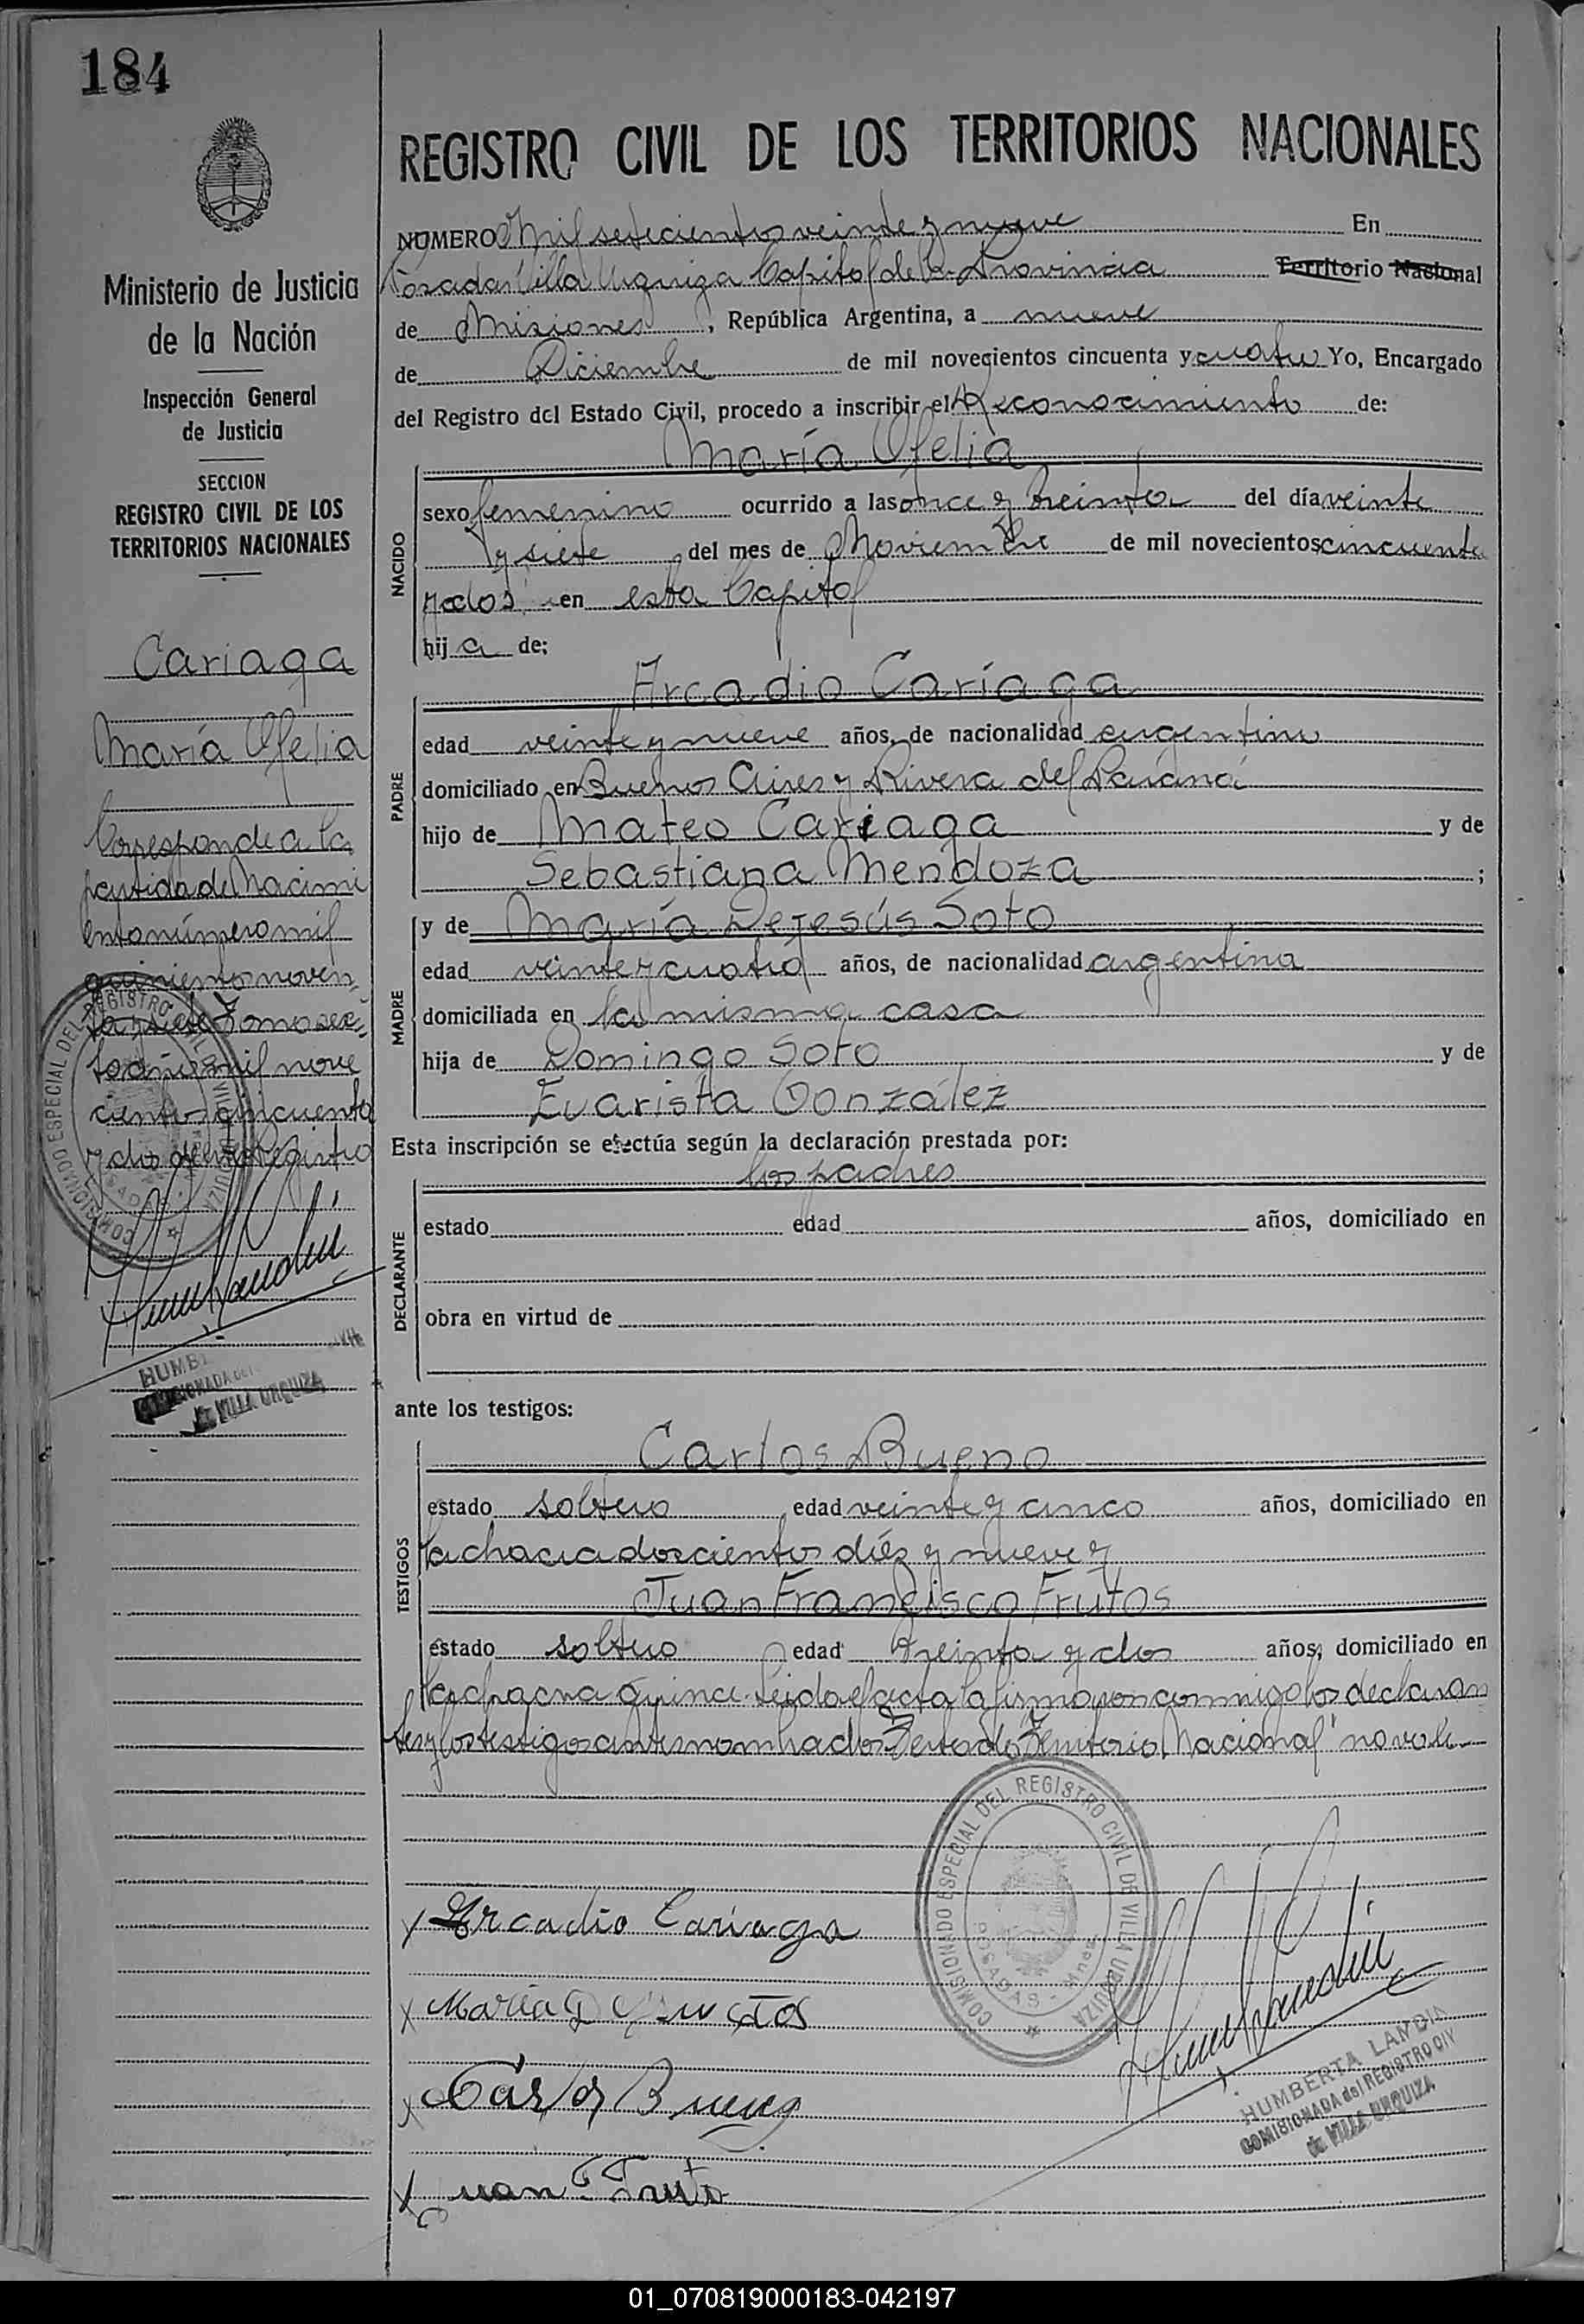 184
Ministerio de Justicia
de la Nación
Inspección General
de Justicia
SECCION
REGISTRO CIVIL DE LOS
TERRITORIOS NACIONALES
Cariaga
María Ofelia
Corresponde a la
partida de Nacimi
ento número mil
quinientos noven
ta y siete Tomo sex
to año mil nove
cientos cincuenta
y dos de este Registro
COMISIONADO ESPECIAL DEL REGISTRO CIVIL DE VILLA URQUIZA
HUMB
COMISIONADA del
de VILLA URQUIZA
REGISTRO CIVIL DE LOS TERRITORIOS NACIONALES
NUMERO Mil setecientos veinte y nueve En
Posadas Villa Urquiza Capital de la Provincia Territorio Nacional
de Misiones, República Argentina, a nueve
de Diciembre de mil novecientos cincuenta y cuatro Yo, Encargado
del Registro del Estado Civil, procedo a inscribir el Reconocimiento de:
María Ofelia
NACIDO
sexo femenino ocurrido a las once y treinta del día veinte
y siete del mes de Noviembre de mil novecientos cincuenta
y dos en esta Capital
hija de:
Arcadio Cariaga
PADRE
edad veinte y nueve años, de nacionalidad argentino
domiciliado en Buenos Aires y Rivera del Paraná
hijo de Mateo Cariaga y de
Sebastiana Mendoza ;
MADRE
y de María Dejesús Soto
edad veinte y cuatro años, de nacionalidad argentina
domiciliada en la misma casa
hija de Domingo Soto y de
Evarista González
Esta inscripción se efectúa según la declaración prestada por:
los padres
DECLARANTE
estado edad años, domiciliado en
obra en virtud de
ante los testigos:
TESTIGOS
Carlos Bueno
estado soltero edad veinte y cinco años, domiciliado en
la chacra doscientos diéz y nueve y
Juan Francisco Frutos
estado soltero edad treinta y dos años, domiciliado en
la chacra quince. Leida el acta la firmaron conmigo los declaran
tes y los testigos antes nombrados Testado "Territorio Nacional" no vale
COMISIONADO ESPECIAL DEL REGISTRO CIVIL DE VILLA URQUIZA
POSADAS - Mnes
x Arcadio Cariaga
x María D
x Carlos Bueno
x Juan F Fruto
HUMBERTA LANDIN
COMISIONADA del REGISTRO CIV
de VILLA URQUIZA
01_070819000183-042197